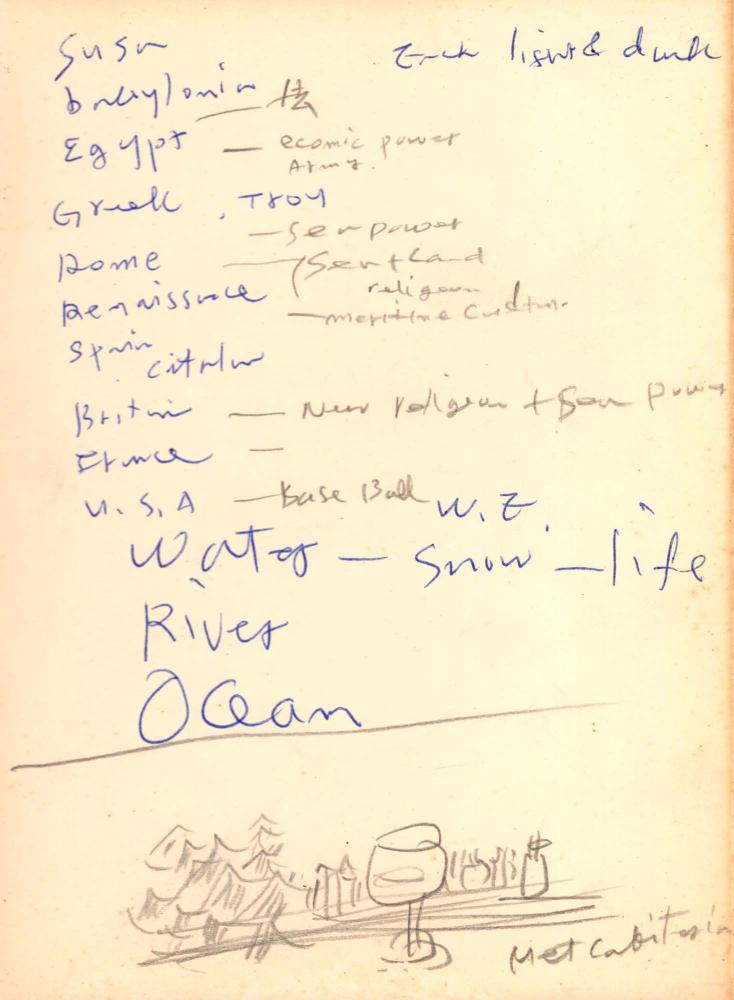 Susa
light & dark
babylonia — 法
Egypt — ecomic power
Army.
Greek, Troy
— sea power
Rome — Sea + Land
religion
Renaissance
— meritime
Spain
Britain — New religion + Sea power
France —
U.S.A — Base Ball W.Z.
Water — Snow — life
River
Ocean
Met